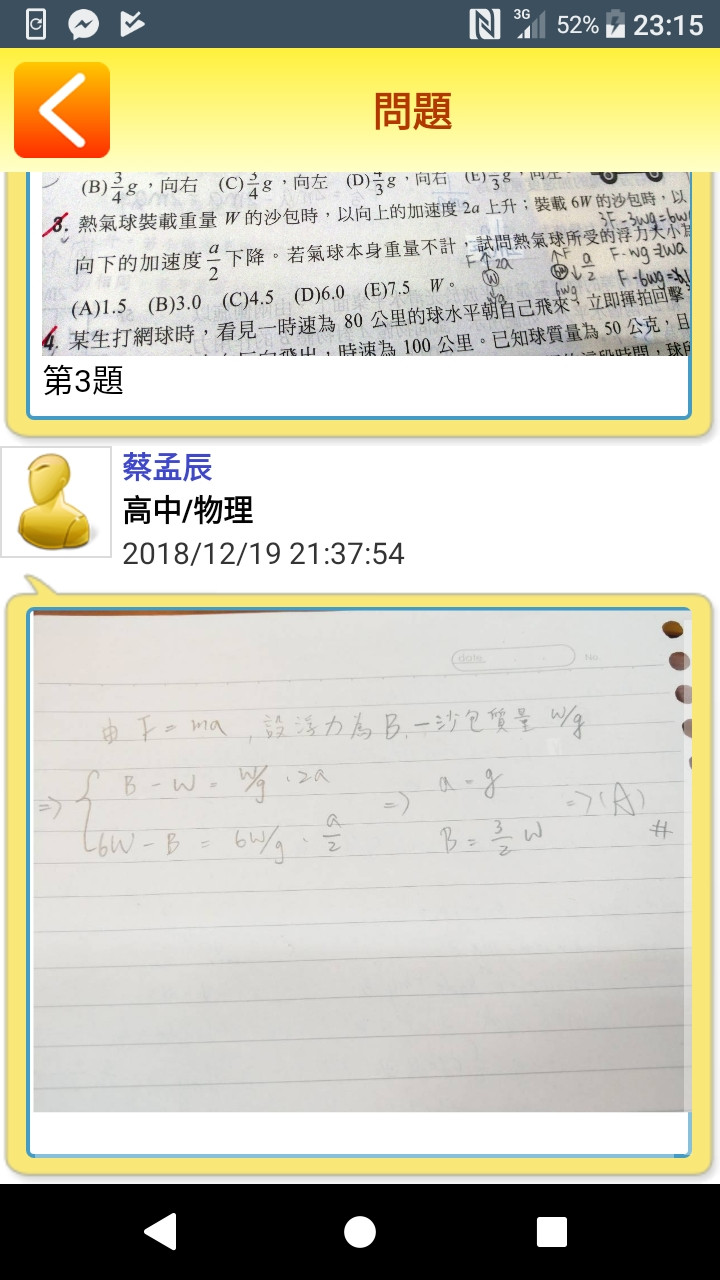 3G 52% 23:15
問題
(B)3/4 g，向右 (C)3/4 g，向左 (D)4/3 g，向右 (E)
3. 熱氣球裝載重量 W 的沙包時，以向上的加速度 2a 上升；裝載 6W 的沙包時，以
3F-3wg=6w
向下的加速度 a/2 下降。若氣球本身重量不計，試問熱氣球所受的浮力大小為
F 2a
W
F a/2
6wg
F-wg=2wa
F-6wg=
(A)1.5 (B)3.0 (C)4.5 (D)6.0 (E)7.5 W。
4. 某生打網球時，看見一時速為 80 公里的球水平朝自己飛來，立即揮拍回擊
飛出，時速為 100 公里。已知球質量為 50 公克，且
第3題
蔡孟辰
高中/物理
2018/12/19 21:37:54
date. No
由 F = ma , 設浮力為 B, 一沙包質量 W/g
=> { B - W = W/g · 2a => a = g => (A)
6W - B = 6W/g · a/2 B = 3/2 W #